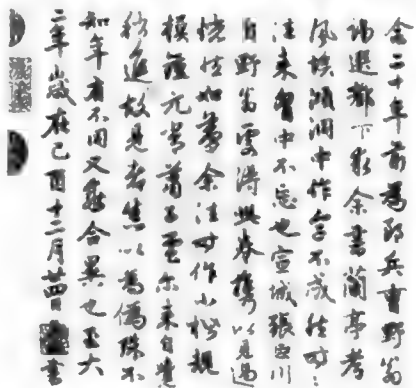 余二十年前為郎兵曹野翁
退 下 余書蘭亭考
風埃澒洞中作字不成往時
往來胸中不忘也宣城張
自野翁處得此卷攜以見過
恍如夢余往時作小楷規
模鍾元常蕭子雲尔來自覺
稍進故見者悉以為偽殊不
知年有不同又乖合異也至大
二年歲在己酉十二月廿四日 書